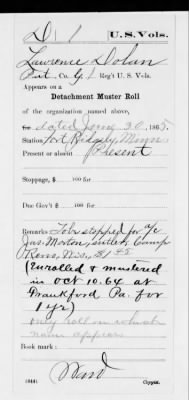 D | 1 | U. S. Vols.
Lawrence Dolan
Pvt., Co. G, 1 Reg't U. S. Vols.
Appears on a
Detachment Muster Roll
of the organization named above,
for dated June 30, 1865.
Station Fort Ridgely, Minn
Present or absent Present
Stoppage, $ 100 for
Due Gov't $ 100 for
Remarks: To be stopped for a/c
Jas. Morton, sutler, Camp
Reno, Wis. $1
(Enrolled & mustered
in Oct 10.64 at
Frankford Pa. for
1 yr)
only roll on which
name appears
Book mark:
Ward
(344) Copyist.